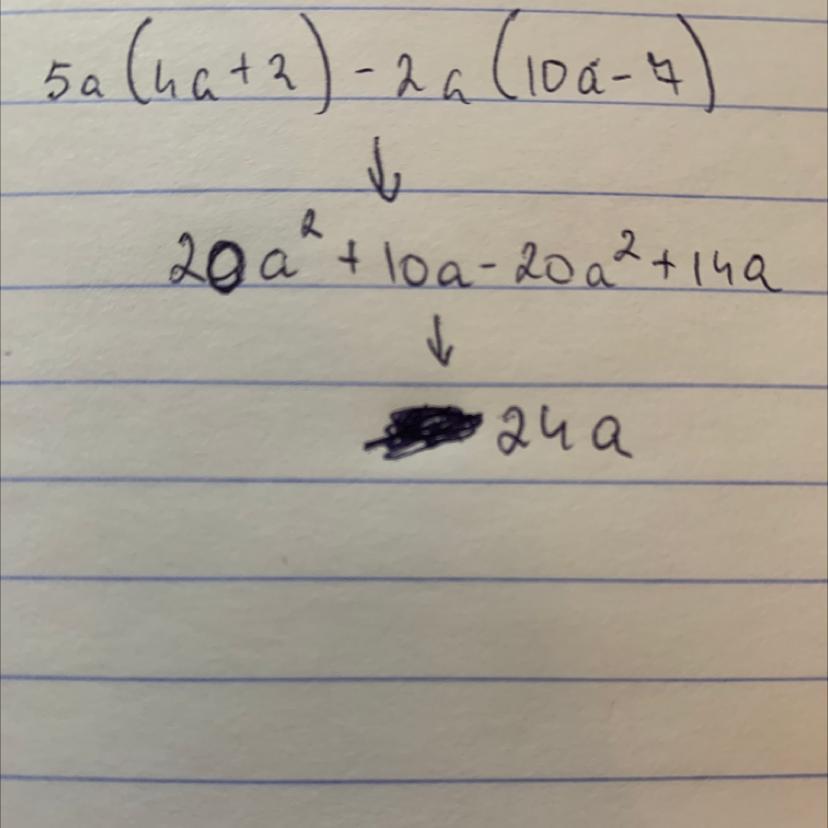 5a(4a+2)-2a(10a-7)
↓
20a²+10a-20a²+14a
↓
24a